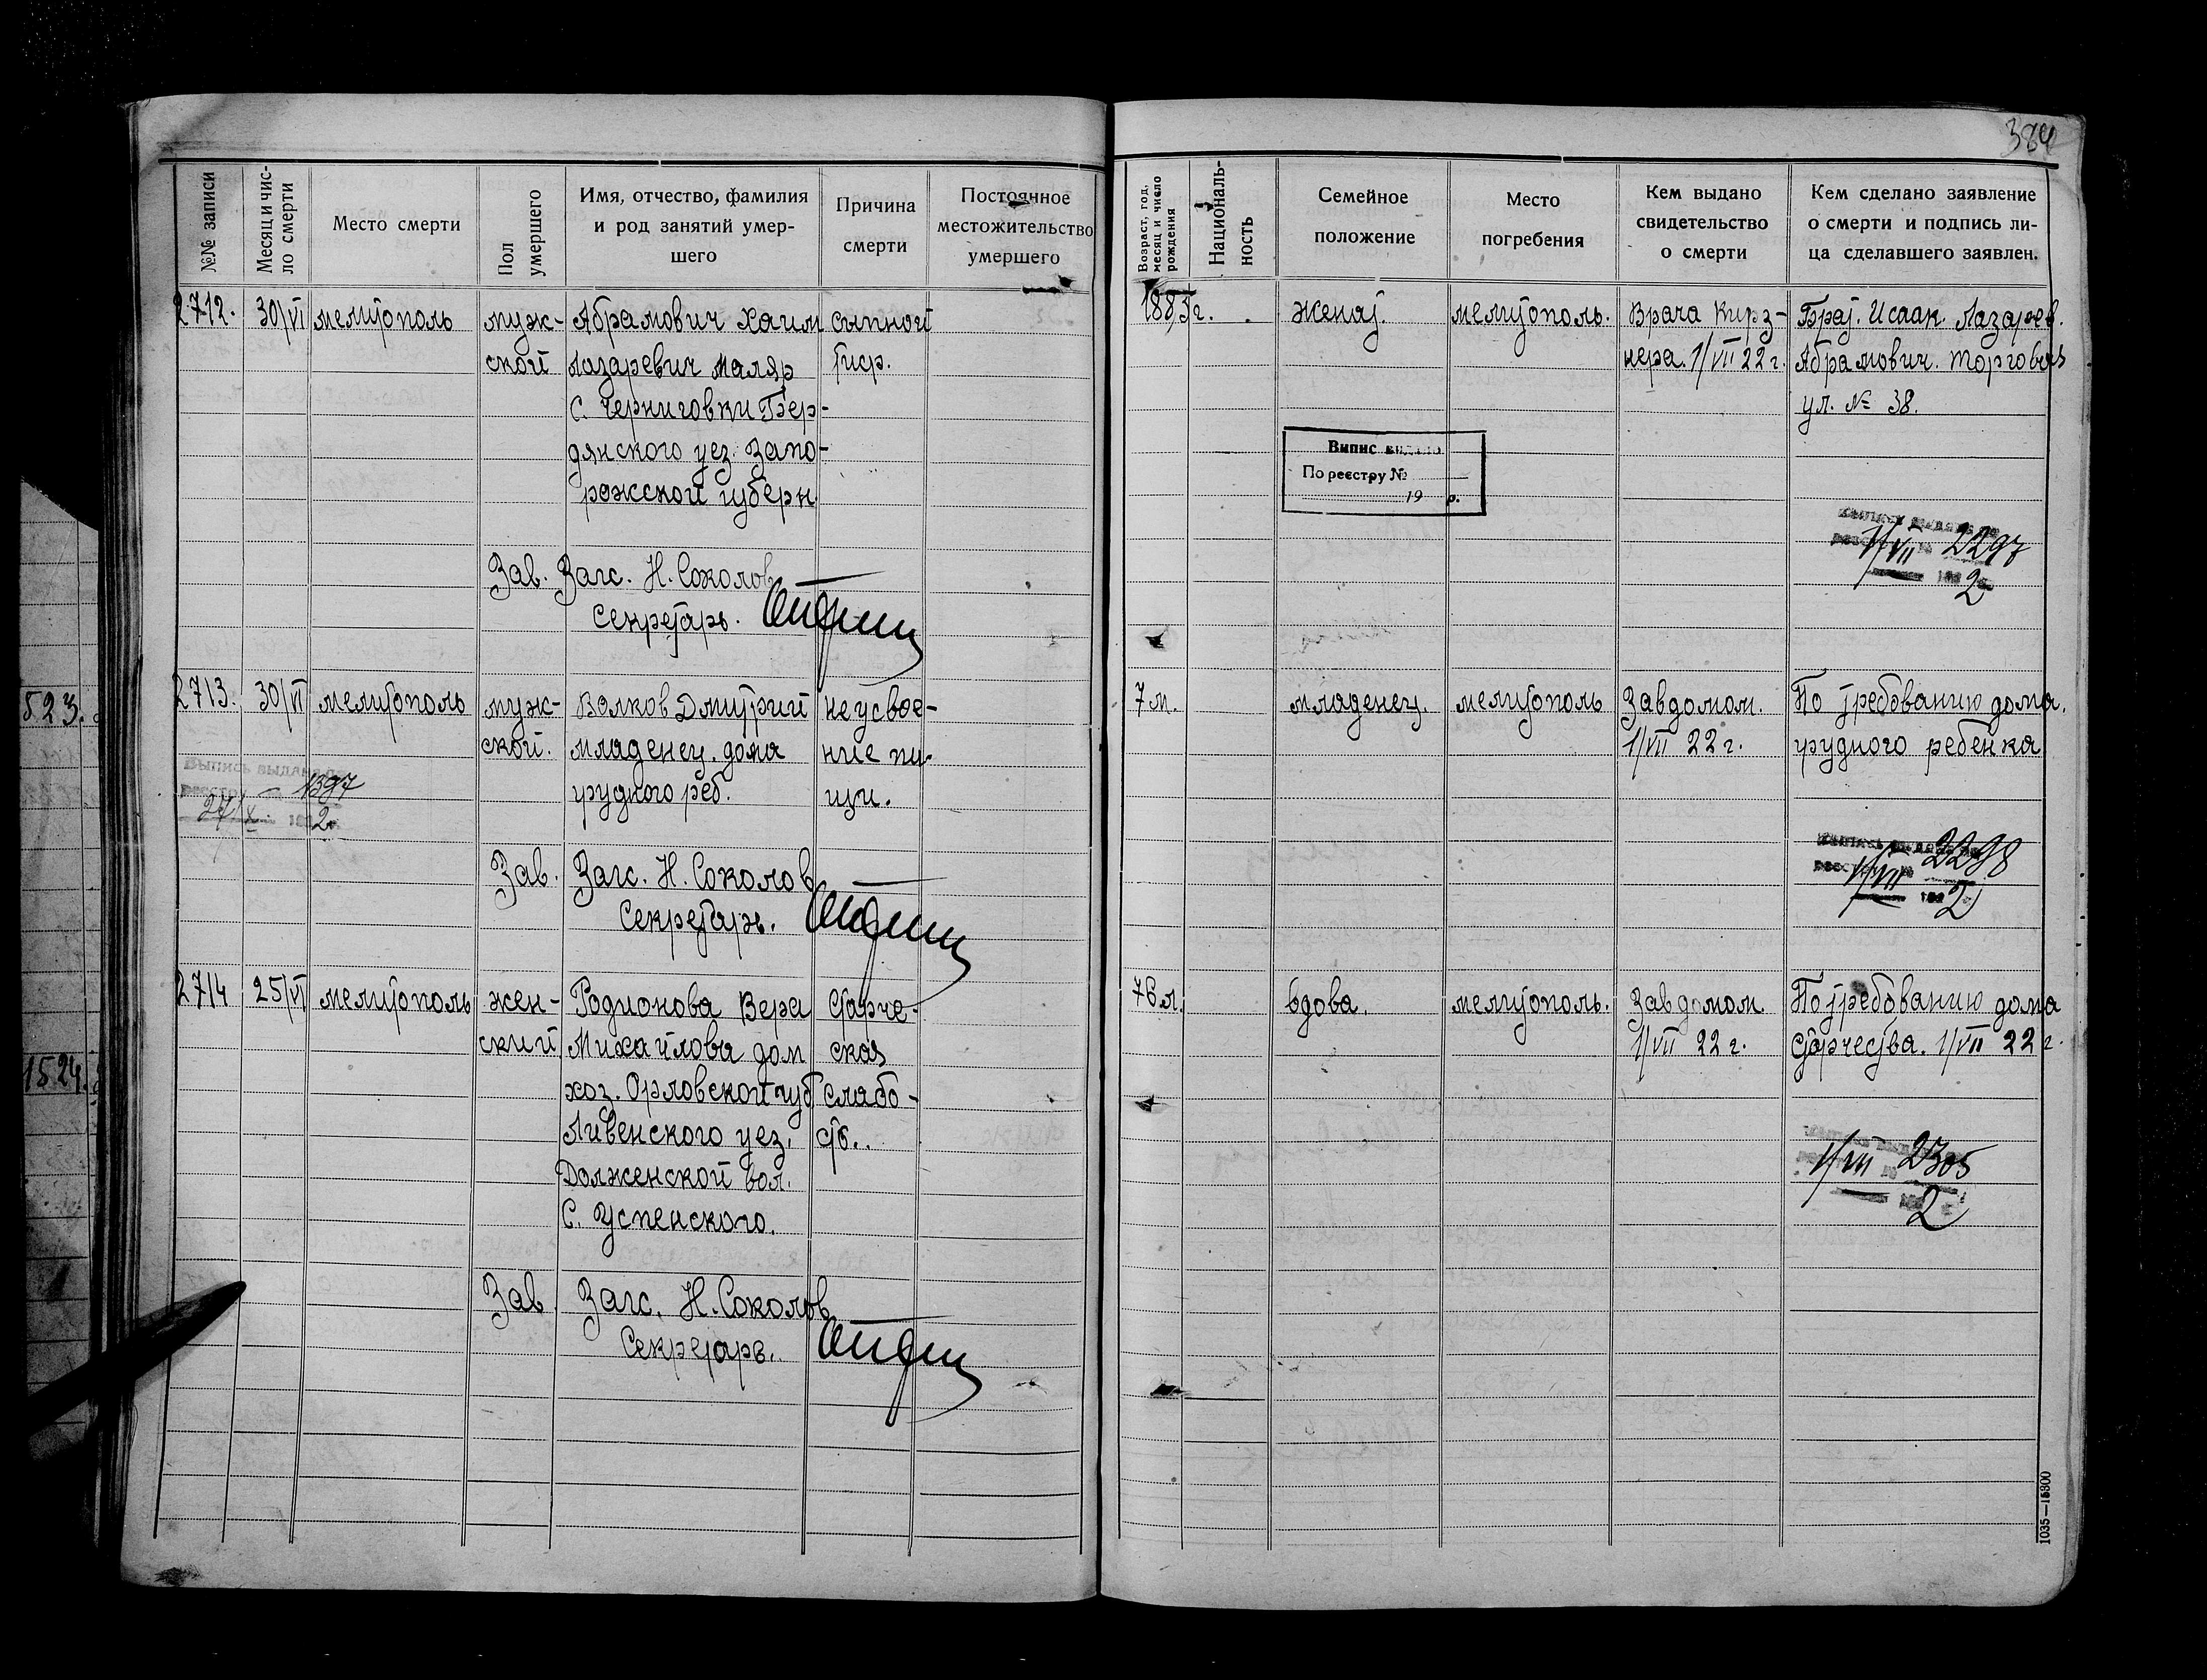 384
№№ записи
Месяц и чис-
ло смерти
Место смерти
Пол
умершего
Имя, отчество, фамилия
и род занятий умер-
шего
Причина
смерти
Постоянное
местожительство
умершего
Возраст, год,
месяц и число
рождения
Националь-
ность
Семейное
положение
Место
погребения
Кем выдано
свидетельство
о смерти
Кем сделано заявление
о смерти и подпись ли-
ца сделавшего заявлен.
2712.
30/VI
мелитополь
муж-
ской
Абрамович Хаим
Лазаревич маляр
с. Черниговки Бер-
дянского уез. Запо-
рожской губерн.
сыпной
тиф.
1885г.
женат.
мелитополь.
Врача Кирз-
нера. 1/VII 22 г.
Брат. Исаак Лазарев.
Абрамович. торговая
ул. № 38.
Випис видано
По реєстру №
19 р.
1/VII 2297
192 2
Зав. Загс. Н. Соколов
Секретарь.
2713.
30/VI
мелитополь
муж-
ской.
Волков Дмитрий
младенец. дома
грудного реб.
неусвое-
ние пи-
щи.
7 м.
младенец.
мелитополь
Завдомом.
1/VII 22 г.
По требованию дома.
грудного ребенка
Выпись выдана
1397
27/X 192 2
1/VII 2298
192 2
Зав. Загс. Н. Соколов
Секретарь.
2714
25/VI
мелитополь
жен-
ский
Родионова Вера
Михайлова дом
хоз. Орловской губ
Ливенского уез.
Долженской вол.
с. Успенского.
Старче-
ская
слабо-
сть.
76 л.
вдова.
мелитополь.
Завдомом.
1/VII 22 г.
По требованию дома
старчества. 1/VII 22 г.
1/VII 2305
2
Зав Загс. Н. Соколов
Секретарь.
523.
1524.
1035—15300